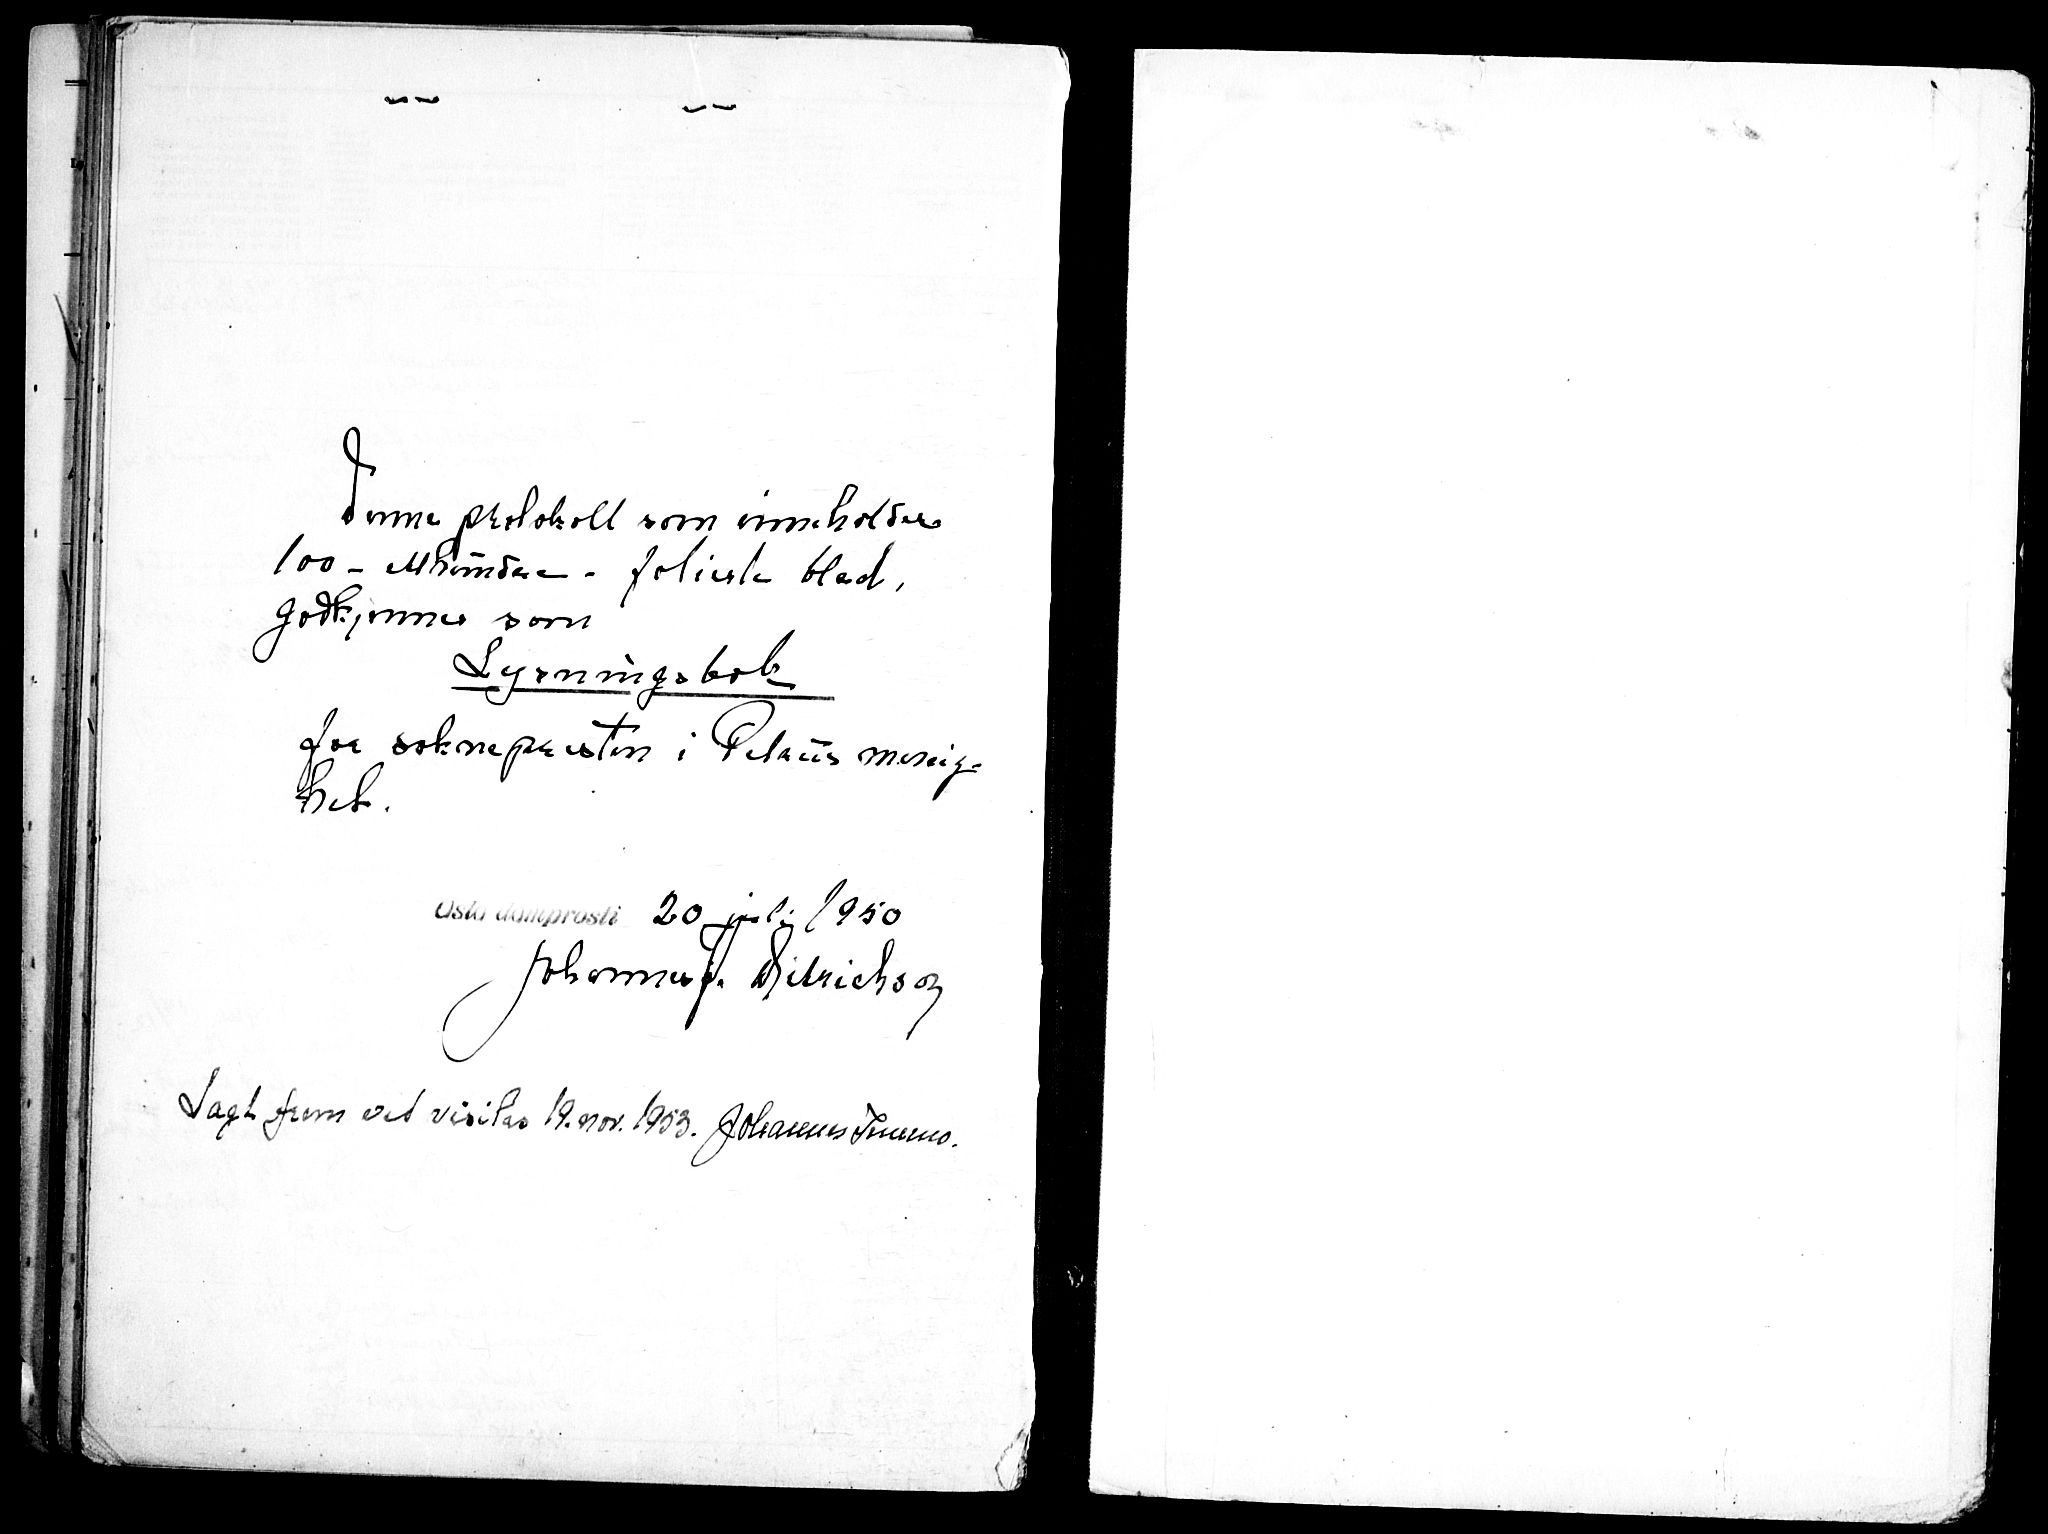 Denne protokoll som inneholder
100 - etthundre - folierte blad,
godkjennes som
Lysningsbok
for soknepresten i Petrus menig-
het.
Oslo domprosti 20 juli 1950
Johannes J. Ditrichson
Lagt frem ved visitas 19. nov. 1953. Johannes Smemo.